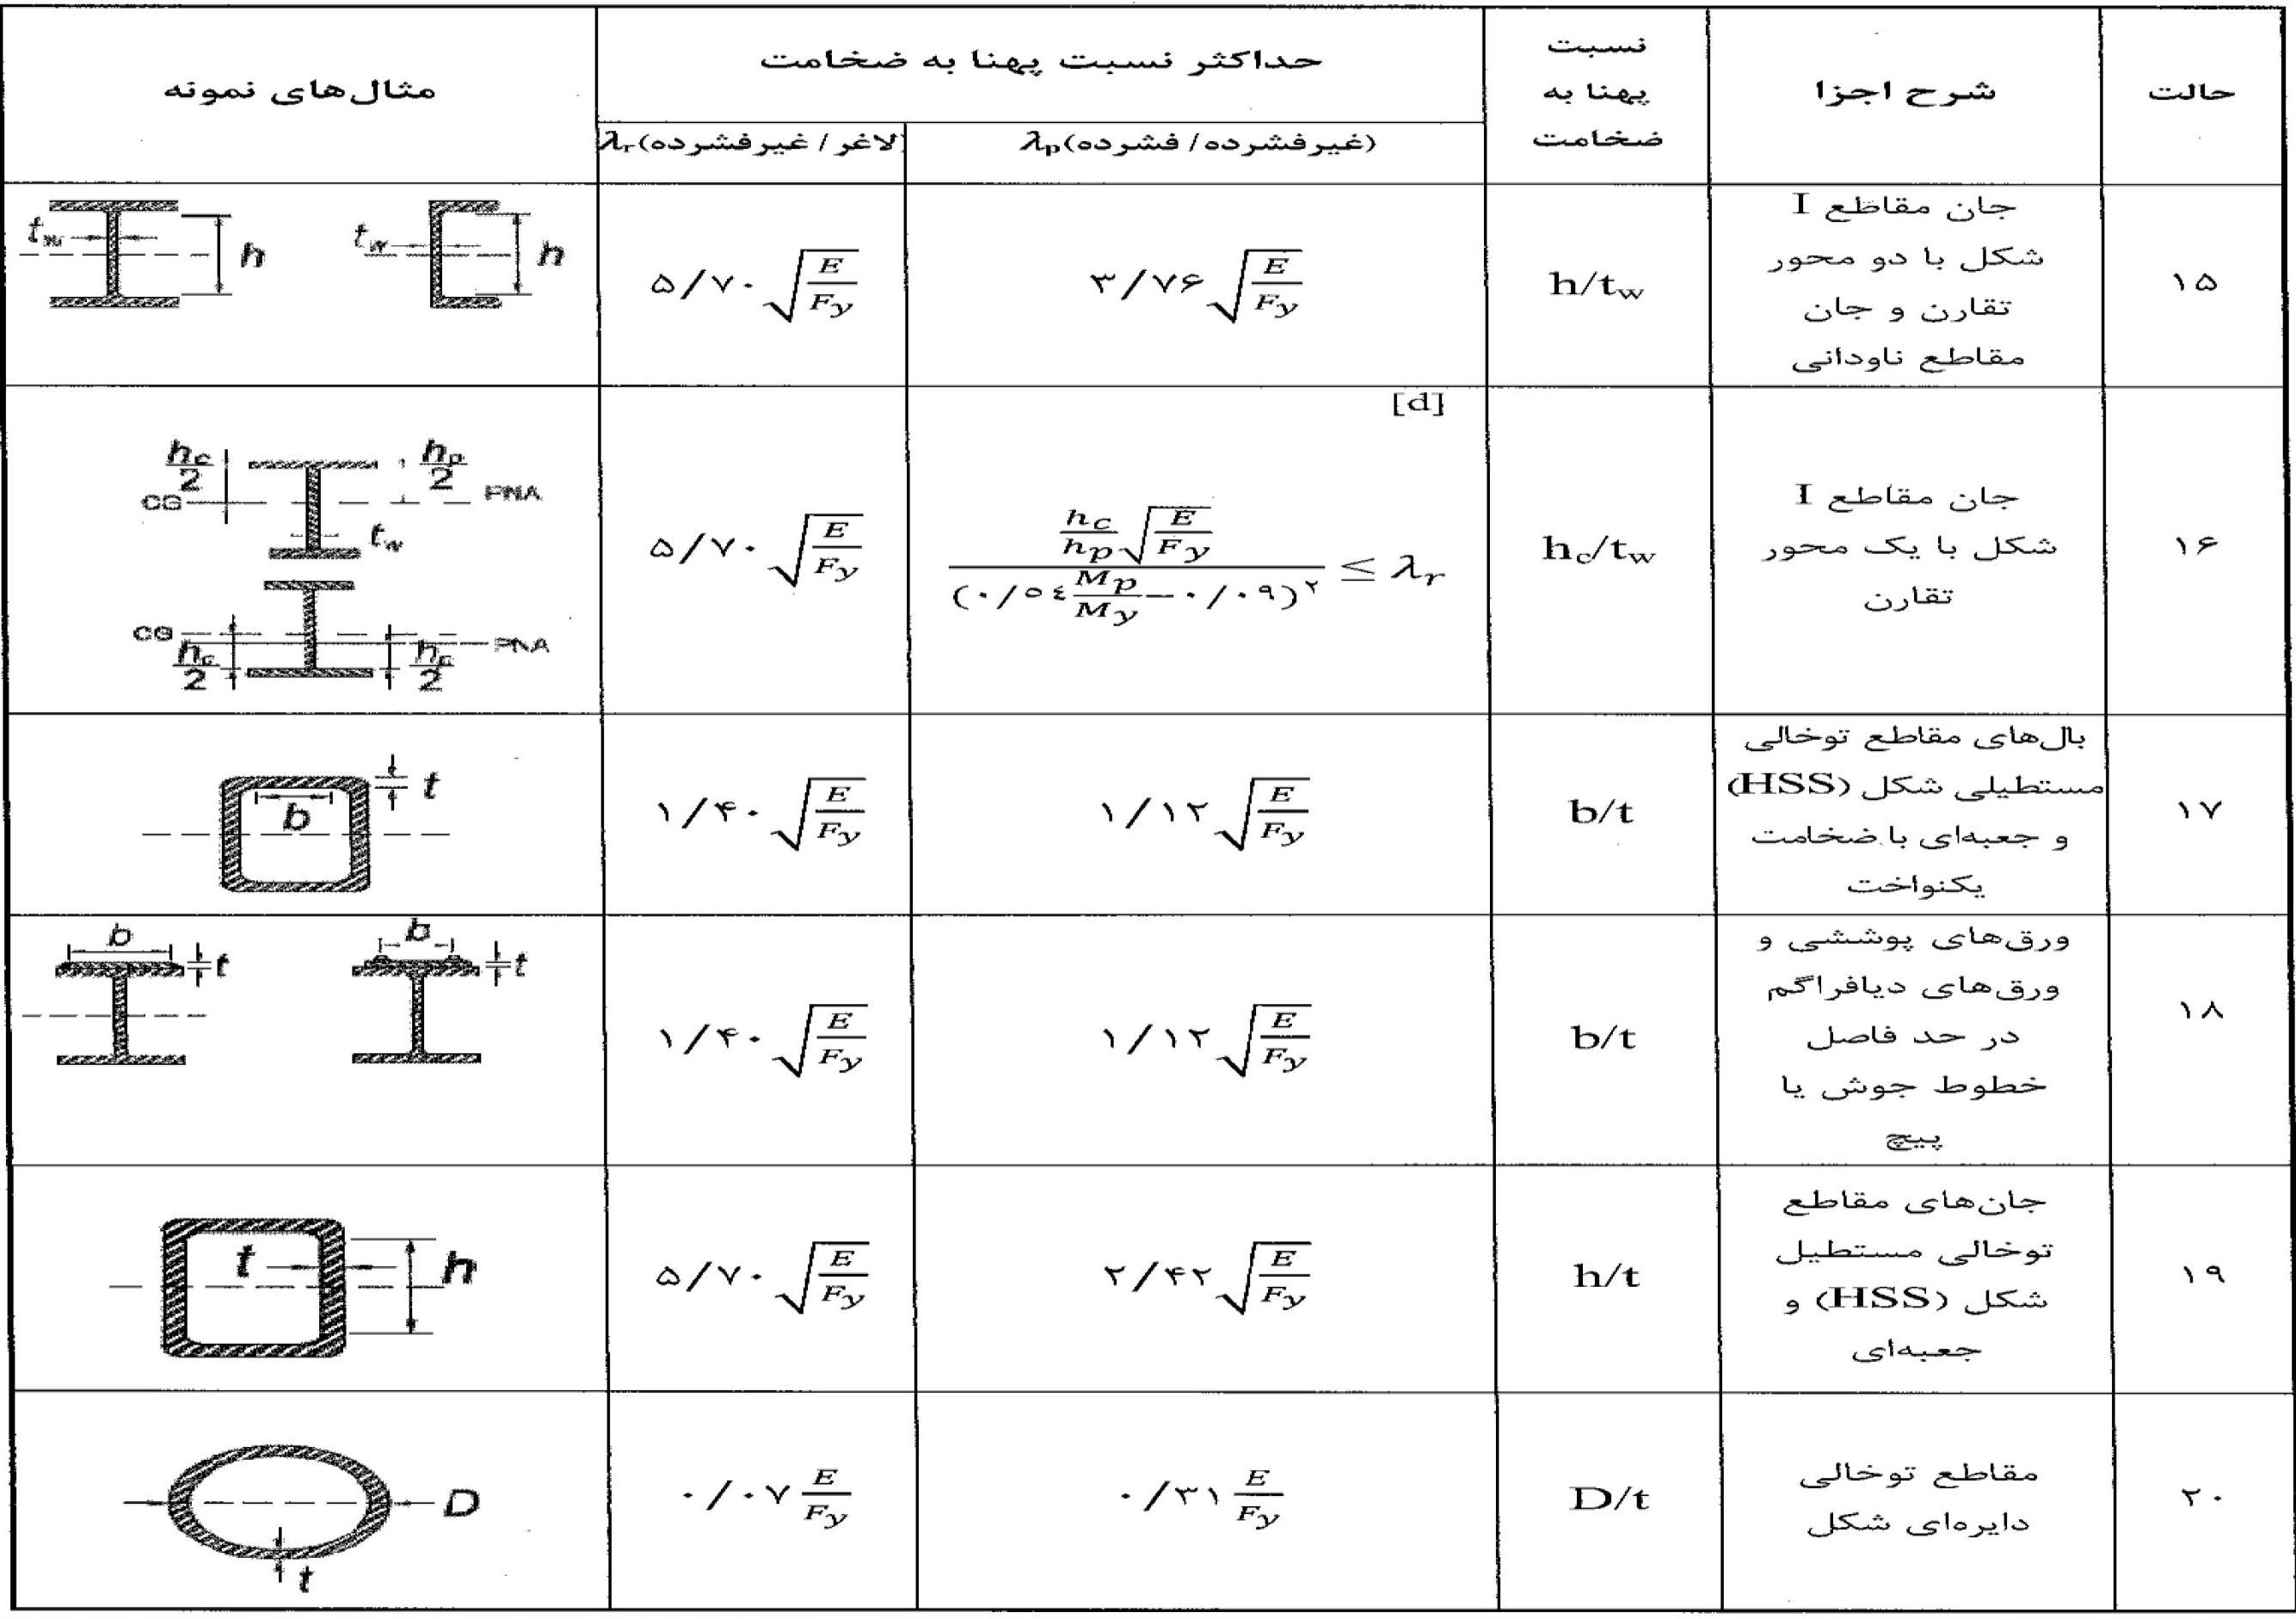 حالت
شرح اجزا
نسبت
پهنا به
ضخامت
حداکثر نسبت پهنا به ضخامت
λp(غیرفشرده / فشرده)
λr(لاغر / غیرفشرده
مثال‌های نمونه
۱۵
جان مقاطع I
شکل با دو محور
تقارن و جان
مقاطع ناودانی
h/tw
۳/۷۶ √(E/Fy)
۵/۷۰ √(E/Fy)
tw h
tw h
۱۶
جان مقاطع I
شکل با یک محور
تقارن
hc/tw
[d]
(hc/hp √(E/Fy)) / (۰/٥٤ Mp/My − ۰/۰۹)^۲ ≤ λr
۵/۷۰ √(E/Fy)
hc/2 hp/2
CG PNA
tw
CG PNA
hc/2
۱۷
بال‌های مقاطع توخالی
مستطیلی شکل (HSS)
و جعبه‌ای با ضخامت
یکنواخت
b/t
۱/۱۲ √(E/Fy)
۱/۴۰ √(E/Fy)
t
b
۱۸
ورق‌های پوششی و
ورق‌های دیافراگم
در حد فاصل
خطوط جوش یا
پیچ
b/t
۱/۱۲ √(E/Fy)
۱/۴۰ √(E/Fy)
b t
b t
۱۹
جان‌های مقاطع
توخالی مستطیل
شکل (HSS) و
جعبه‌ای
h/t
۲/۴۲ √(E/Fy)
۵/۷۰ √(E/Fy)
t h
۲۰
مقاطع توخالی
دایره‌ای شکل
D/t
۰/۳۱ E/Fy
۰/۰۷ E/Fy
D
t